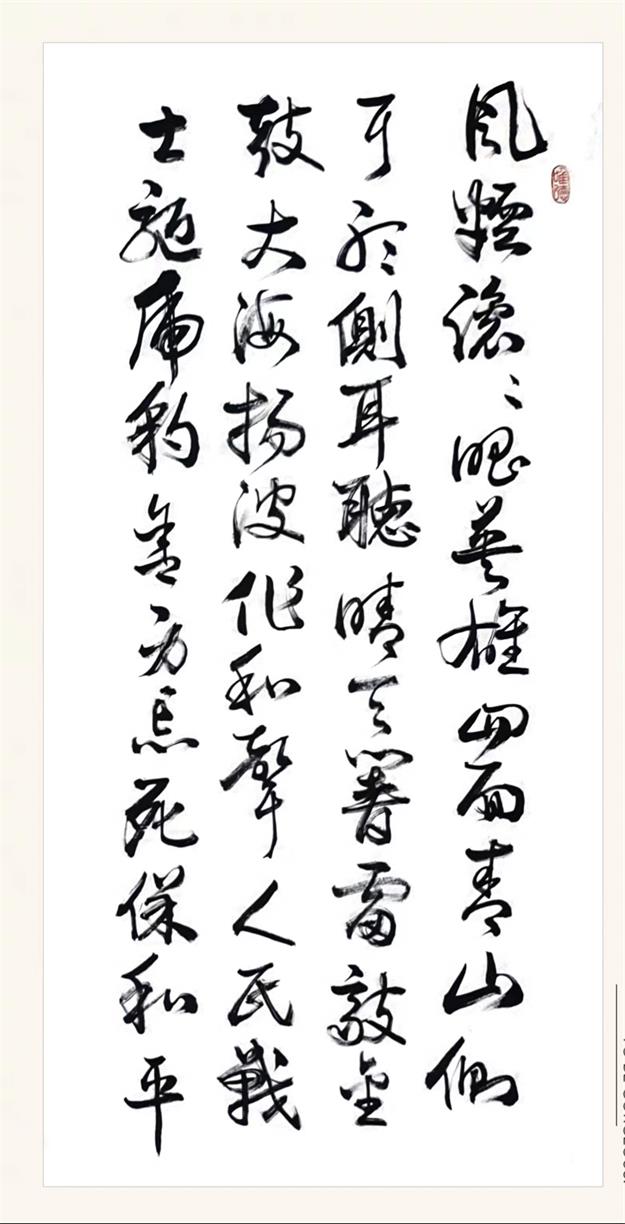 風煙滚〻唱英雄四面青山側
耳听側耳聽晴天響雷敲金
鼓大海揚波作和聲人民戰
士驱虎豹舍身忘死保和平